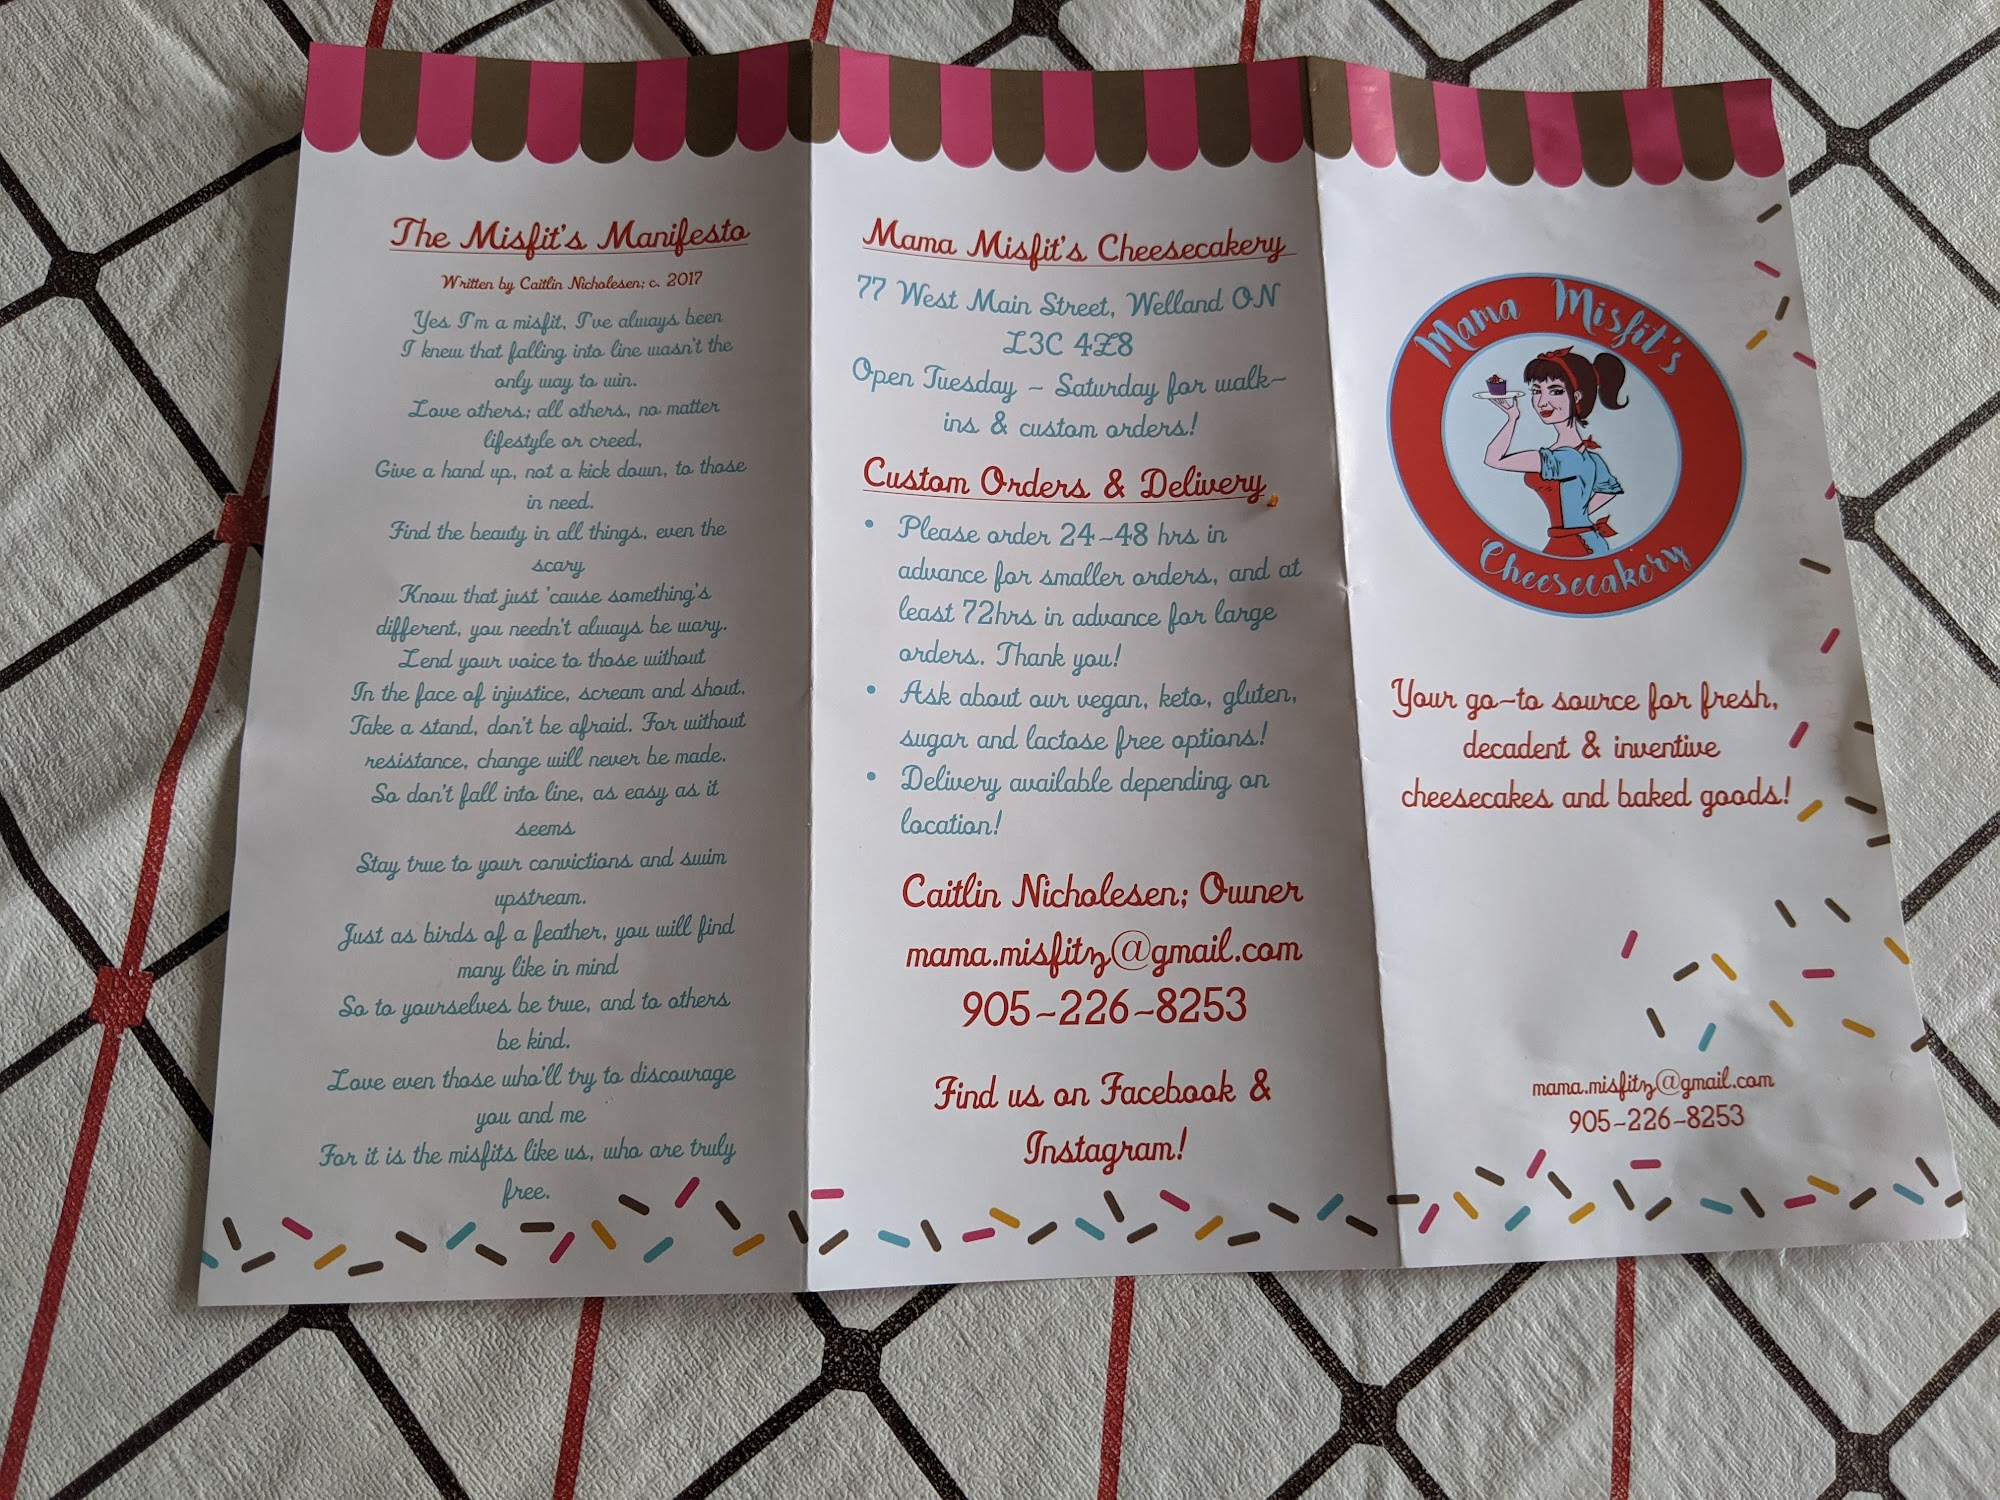 The Misfit's Manifesto
Written by Caitlin Nicholesen; c. 2017
Yes I'm a misfit, I've always been
I knew that falling into line wasn't the
only way to win.
Love others; all others, no matter
lifestyle or creed,
Give a hand up, not a kick down, to those
in need.
Find the beauty in all things, even the
scary
Know that just 'cause something's
different, you needn't always be wary.
Lend your voice to those without
In the face of injustice, scream and shout.
Take a stand, don't be afraid. For without
resistance, change will never be made.
So don't fall into line, as easy as it
seems
Stay true to your convictions and swim
upstream.
Just as birds of a feather, you will find
many like in mind
So to yourselves be true, and to others
be kind.
Love even those who'll try to discourage
you and me
For it is the misfits like us, who are truly
free.
Mama Misfit's Cheesecakery
77 West Main Street, Welland ON
L3C 4Z8
Open Tuesday ~ Saturday for walk~
ins & custom orders!
Custom Orders & Delivery
• Please order 24~48 hrs in
advance for smaller orders, and at
least 72hrs in advance for large
orders. Thank you!
• Ask about our vegan, keto, gluten,
sugar and lactose free options!
• Delivery available depending on
location!
Caitlin Nicholesen; Owner
mama.misfitz@gmail.com
905~226~8253
Find us on Facebook &
Instagram!
Mama Misfit's
Cheesecakery
Your go~to source for fresh,
decadent & inventive
cheesecakes and baked goods!
mama.misfitz@gmail.com
905~226~8253